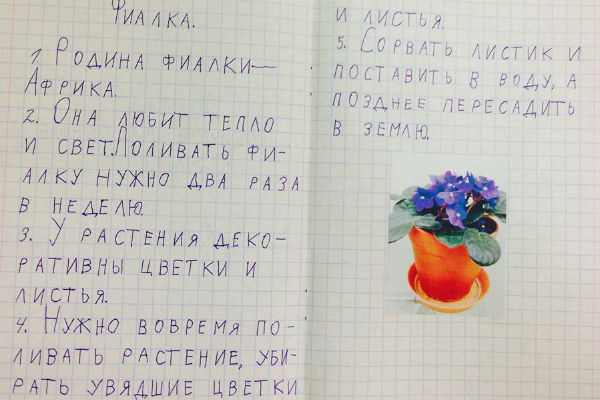 Фиалка.
1. Родина фиалки—
Африка.
2. Она любит тепло
и свет.Поливать фи-
алку нужно два раза
в неделю.
3. У растения деко-
ративны цветки и
листья.
4. Нужно вовремя по-
ливать растение, уби-
рать увядшие цветки
и листья.
5. Сорвать листик и
поставить в воду, а
позднее пересадить
в землю.